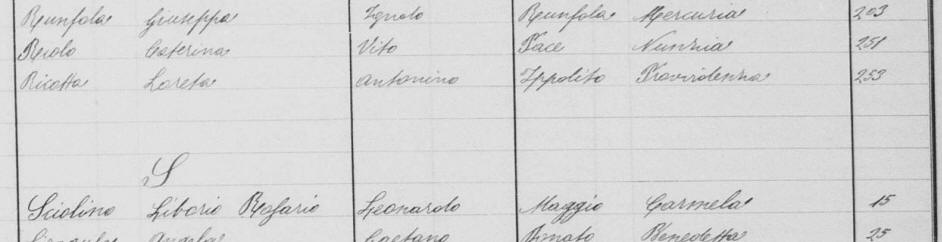 Runfola Giuseppa Ignoto Runfola Mercuria 203
Riolo Caterina Vito Pace Nunzia 251
Ricotta Loreta Antonino Ippolito Providenza 253
S
Sciolino Liborio Rosario Leonardo Maggio Carmela 15
Angela Gaetano Benedetta 25